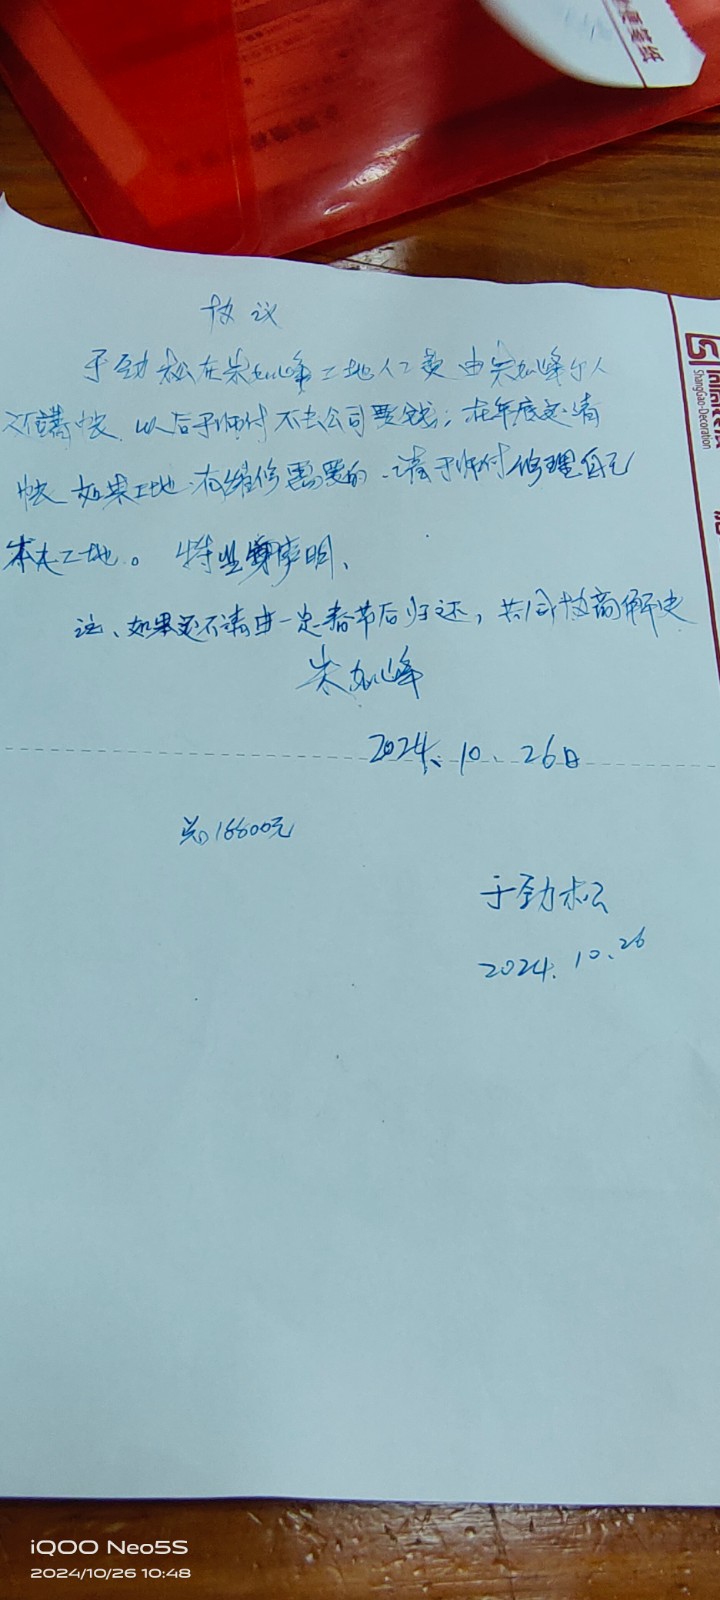 协议
于劲松在朱如峰工地人工费由朱如峰个人
还清帐．以后于师付不去公司要钱；在年底还清
帐 如果工地．有维修需要的．请于师付修理自己
本人工地。 特此声明、
注、如果还不清由一定春节后归还，共同协商解决
朱如峰
2024、10、26日
总 16600元
于劲松
2024.10.26
ShangGao-Decoration
iQOO Neo5S
2024/10/26 10:48